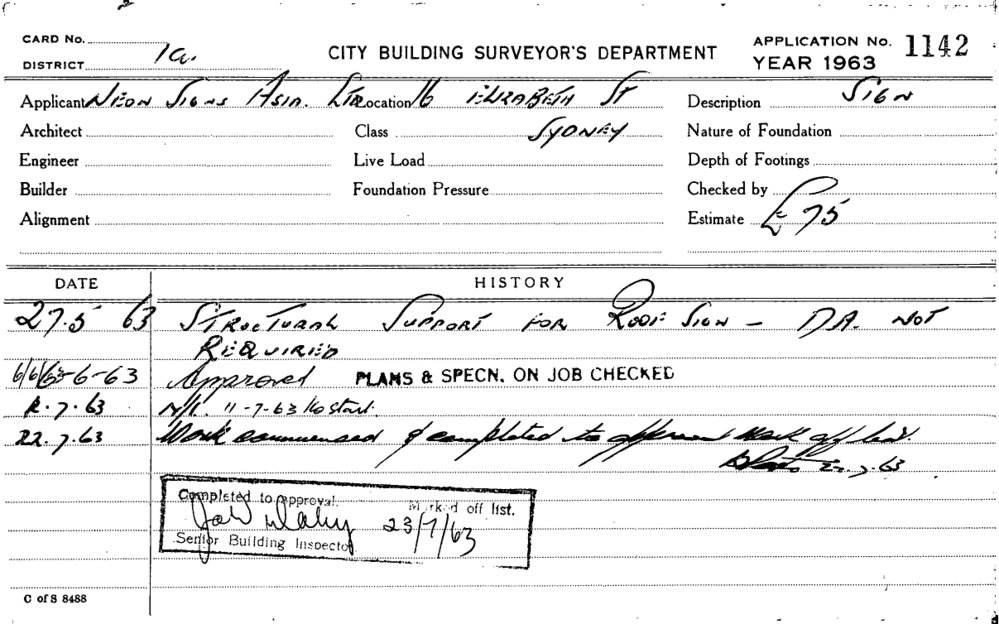 CARD No.
DISTRICT 1a.
CITY BUILDING SURVEYOR'S DEPARTMENT
APPLICATION No. 1142
YEAR 1963
Applicant NEON SIGNS ASIA. LTD Location 16 ELIZABETH ST Description SIGN
Architect Class SYDNEY Nature of Foundation
Engineer Live Load Depth of Footings
Builder Foundation Pressure Checked by
Alignment Estimate £ 75
DATE HISTORY
27.5 63 STRUCTURAL SUPPORT FOR ROOF SIGN — DA. NOT
REQUIRED
-6-63 Approved PLANS & SPECN. ON JOB CHECKED
.7.63 11-7-63 to start.
22.7.63 Work commenced & completed to approval Mark off list.
22.7.63
Completed to approval. Marked off list.
23/7/63
Senior Building Inspector
C of S 8488